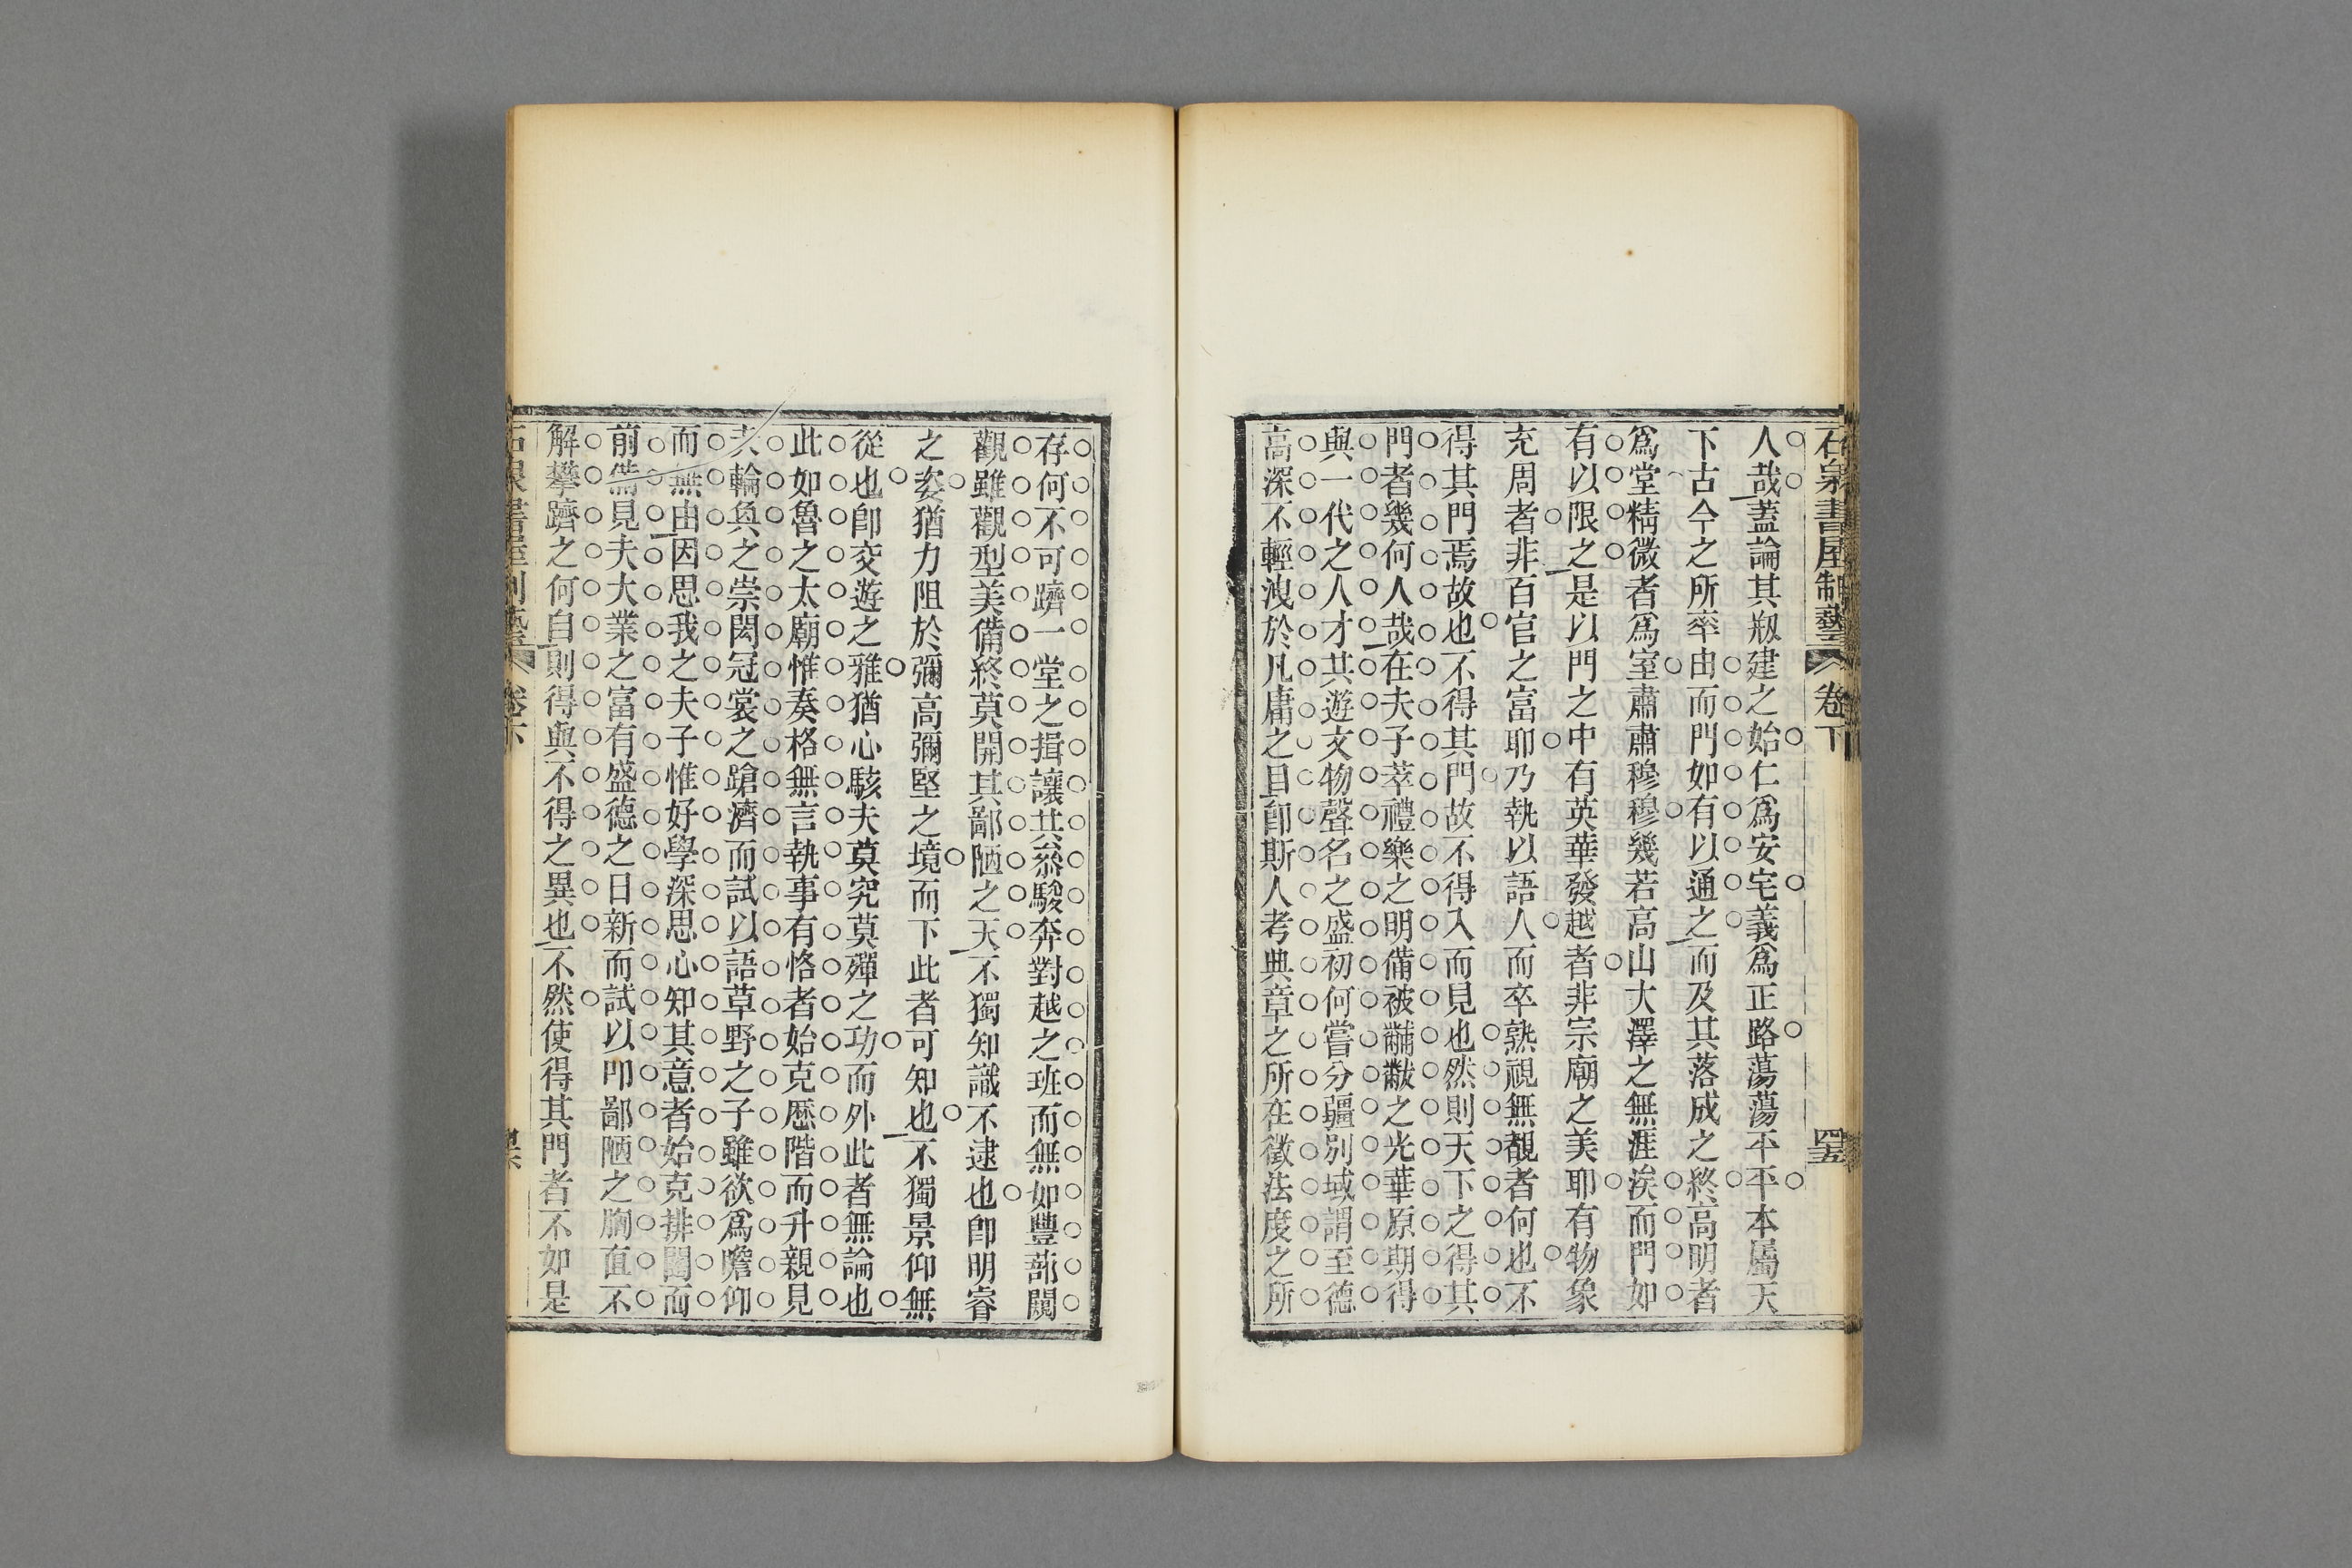 石泉書屋制藝 卷下 四十五
人哉蓋論其剏建之始仁爲安宅義爲正路蕩蕩平平本屬天
下古今之所率由而門如有以通之而及其落成之終高明者
爲堂精微者爲室肅肅穆穆幾若高山大澤之無涯涘而門如
有以限之是以門之中有英華發越者非宗廟之美耶有物象
充周者非百官之富耶乃執以語人而卒熟視無覩者何也不
得其門焉故也不得其門故不得入而見也然則天下之得其
門者幾何人哉在夫子萃禮樂之明備被黼黻之光華原期得
與一代之人才共遊文物聲名之盛初何嘗分疆別域謂至德
高深不輕洩於凡庸之目卽斯人考典章之所在徵法度之所
存何不可躋一堂之揖讓共叅駿奔對越之班而無如豐蔀闚
觀雖觀型美備終莫開其鄙陋之天不獨知識不逮也卽明睿
之姿猶力阻於彌高彌堅之境而下此者可知也不獨景仰無
從也卽交遊之雅猶心駭夫莫究莫殫之功而外此者無論也
此如魯之太廟惟奏格無言執事有恪者始克歷階而升親見
夫輪奐之崇閎冠裳之蹌濟而試以語草野之子雖欲爲瞻仰
而無由因思我之夫子惟好學深思心知其意者始克排闥而
前備見夫大業之富有盛德之日新而試以叩鄙陋之胸直不
解攀躋之何自則得與不得之異也不然使得其門者不如是
石泉書屋制藝 卷下